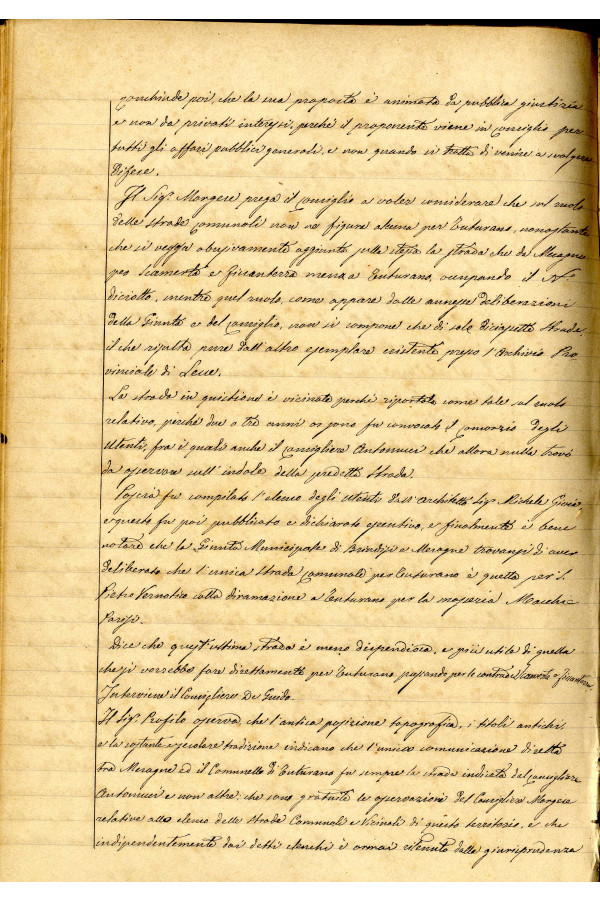 conchiude poi, che la sua proposta è animata da pubblica giustizia
e non da privati interessi, perchè il proponente viene in Consiglio per
tutti gli affari pubblici generali, e non quando si tratta di venire a svolgere
difese.
Il Sig.r Morgese prega il Consiglio a voler considerare che sul ruolo
delle strade Comunali non va figura alcuna per Tuturano, nonostante
che si vegga abusivamente aggiunta sulla stessa la strada che da Mesagne
per Sciamerta e Giucanterra mena a Tuturano, occupando il N.o
diciotto, mentre quel ruolo, come appare dalle annesse deliberazioni
della Giunta e del Consiglio, non si compone che di sole diciasette strade
il che risulta pure dall'altro esemplare esistente presso l'Archivio Pro
vinciale di Lecce.
La strada in quistione è vicinale perchè riportata come tale sul ruolo
relativo, perchè due o tre anni or sono fu convocato il Consorzio degli
Utenti, fra i quali anche il Consigliere Antonucci che allora nulla trovò
da osservare sull'indole della predetta strada.
Dopo fu compilato l'elenco degli Utenti dall'Architetto Sig. Michele
e questo fu poi pubblicato e dichiarato esecutivo, e finalmente è bene
notare che la Giunta Municipale di Brindisi e Mesagne trovansi di aver
deliberato che l'unica strada Comunale per Tuturano è quella per S.
Pietro Vernotico colla diramazione a Tuturano per la masseria Maschi
Parisi.
Dice che quest'ultima strada è meno dispendiosa, e più utile di quella
che si vorrebbe fare direttamente per Tuturano, passando per le contrade
Interviene il Consigliere De Guido.
Il Sig.r Profilo osserva, che l'antica posizione topografica, i titoli antichi
e la costante secolare tradizione indicano che l'unica comunicazione diretta
tra Mesagne ed il Comunello di Tuturano fu sempre la strada indicata dal Consigliere
Antonucci e non altre: che sono gratuite le osservazioni del Consigliere Morgese
relative allo elenco delle strade Comunali e Vicinali di questo territorio, e che
indipendentemente dai detti elenchi è ormai ritenuto dalla giurisprudenza